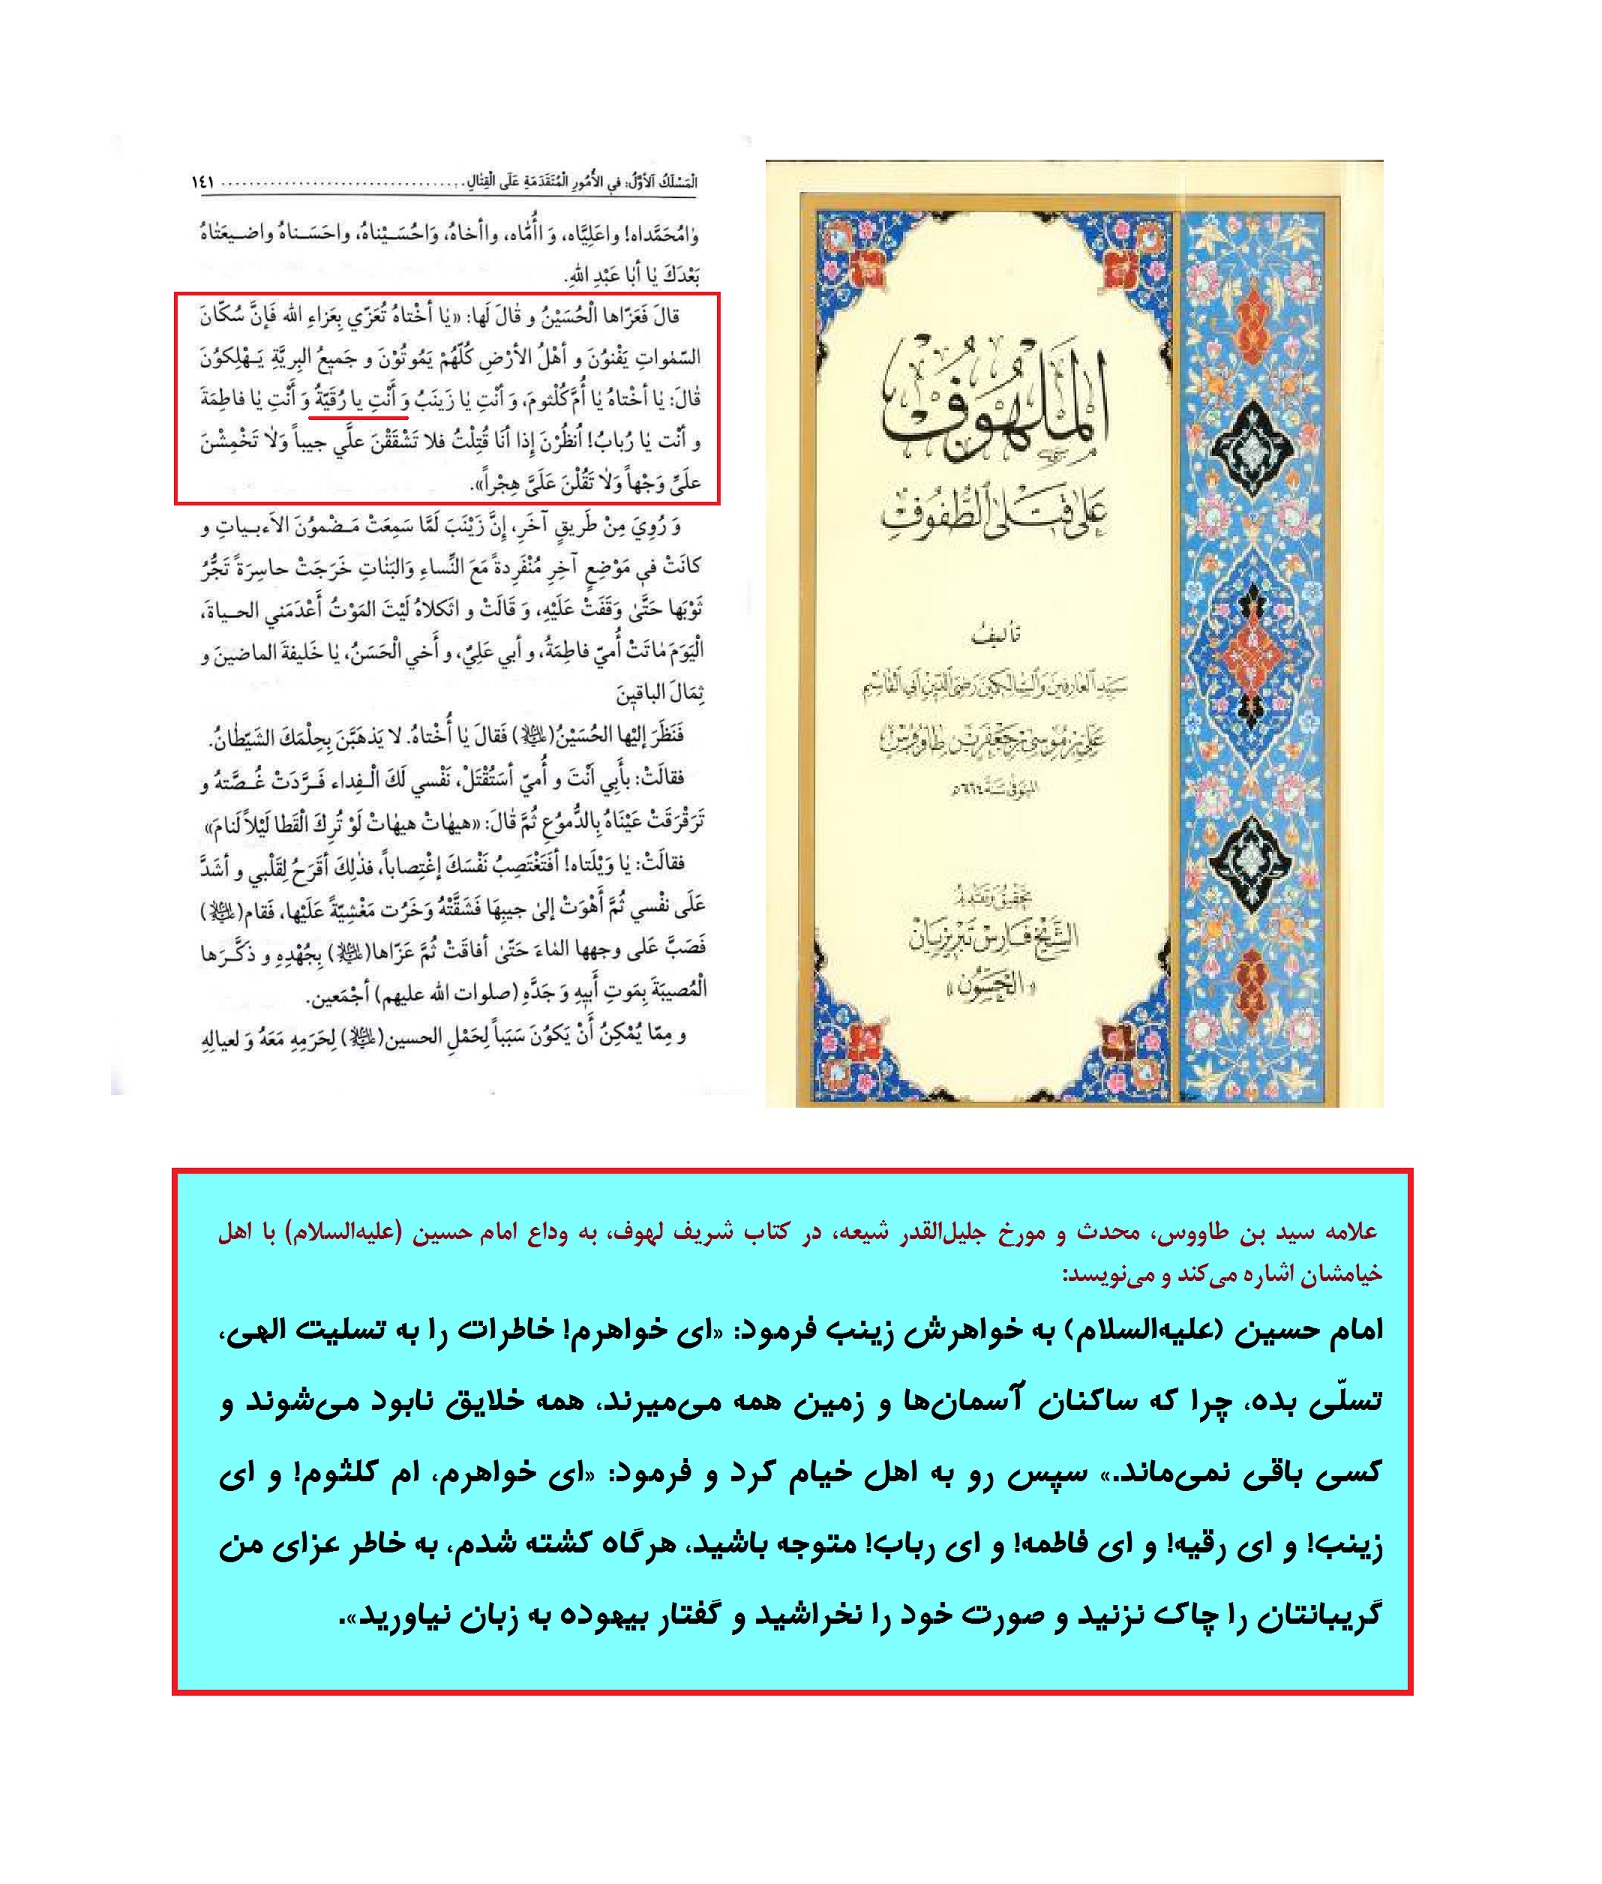 الْمَسْلَكُ الْأَوَّلُ: في الأُمُورِ الْمُتَقَدِّمَةِ عَلَى الْقِتٰالِ .................................. ١٤١
وٰامُحَمَّداه! واعَلِيّاه، وَ اأُمّاه، واأخاهُ، وَاحُسَـيْناهُ، واحَسَـناهُ واضـيعَتٰاهُ
بَعْدَكَ يٰا أبٰا عَبْدِ اللهِ.
قالَ فَعَزّاها الْحُسَيْنُ و قٰالَ لَها: «يٰا أخْتاهُ تُعَزّي بِعَزاءِ الله فَإنَّ سُكّانَ
السّمٰواتِ يَفْنوُنَ و أهْلُ الأرْضِ كُلّهُمْ يَمُوتُوْنَ و جَميعُ البِريَّةِ يَـهْلِكوُنَ
قٰالَ: يٰا أخْتاهُ يٰا أُمَّ كُلْثومَ، وَ أنْتِ يٰا زَينَبُ وَ أَنْتِ يا رُقَيّةُ وَ أَنْتِ يٰا فاطِمَةَ
و أنْت يٰا رُبابُ! اُنظُرْنَ إذا أنَا قُتِلْتُ فلا تَشْقَقْنَ علَّي جيباً وَلاٰ تَخْمِشْنَ
علَىِّ وَجْهاً وَلاٰ تَقُلْنَ عَلَىَّ هِجْراً».
وَ رُوِيَ مِنْ طَريقٍ آخَرِ، إنَّ زَيْنَبَ لَمَّا سَمِعَتْ مَـضْموُنَ الاَءبـياتِ و
كانَتْ في مَوْضِعٍ آخِرِ مُنْفَرِدةً مَعَ النِّساءِ وَالبَنٰاتِ خَرَجَتْ حاسِرَةً تَجُّرُ
ثَوْبَها حَتَّىٰ وَقَفَتْ عَلَيْهِ، وَ قَالَتْ و اثَكلاهُ لَيْتَ المَوْتُ أَعْدَمَني الحـياةَ،
الْيَوَمَ مٰاتَتْ أُميّ فاطِمَةُ، و أبي عَلِيٌ، و أَخي الْحَسَنُ، يٰا خَليفةَ الماضينَ و
ثِمَالَ الباقينَ
فَنَظَرَ إلَيْها الحُسَيْنُ(عليه السلام) فَقالَ يٰا أُخْتاهُ. لا يَذهَبَّنَ بِحِلْمَكَ الشَيّطٰانُ.
فقالَتْ: بأَبِي أنْتَ و أُميّ أسَتُقْتَلْ، نَفْسي لَكَ الْـفِداء فَـرَّدَتْ غُـصَّتهُ و
تَرَقْرَقَتْ عَيْنَاهُ بِالدُّموُعِ ثُمَّ قٰالَ: «هيهٰاتْ هيهٰاتْ لَوْ تُرِكَ الْقَطا لَيْلاً لَنامَ»
فقالَتْ: يٰا وَيْلَتاه! أفَتَغْتَصِبُ نَفْسَكَ إغْتِصاباً، فذٰلِكَ أقَرَحُ لِقَلْبي و أشَدَّ
عَلَى نفْسي ثُمَّ أَهْوَتْ إلىٰ جيبِهَا فَشَقَّتْهُ وَخَرُت مَغْشِيّةً عَلَيْها، فَقام(عليه السلام)
فَصَبَّ عَلى وجهها المٰاءَ حَتّىٰ أفاقَتْ ثُمَّ عَزّاها(عليه السلام) بِجُهْدِهِ و ذكَّـرَها
الْمُصيبَةَ بِمَوتِ أَبيهِ وَ جَدَّهِ (صلوات الله عليهم) أجْمَعين.
و مِمّا يُمْكِنُ أَنْ يَكوُنَ سَبَباً لِحَمْلِ الحسين(عليه السلام) لِحَرَمِهِ مَعَهُ وَ لعيالِهِ
المَلهُوف
عَلىٰ قَتلَى الطُّفُوفِ
تأليفُ
سَيِّدِ العارفينَ وَالسّالكينَ رَضيِّ الدّينِ أبي القاسِمِ
عَليّ بن مُوسىٰ بن جَعْفَر بن طاوُوس
المتوفىٰ سَنَة ٦٦٤ هـ
تحقيقُ وَتقديمُ
الشَّيخ فَارِس تَبريزيَان
«الحَسُّون»
علامه سید بن طاووس، محدث و مورخ جلیل‌القدر شیعه، در کتاب شریف لهوف، به وداع امام حسین (علیه‌السلام) با اهل
خیامشان اشاره می‌کند و می‌نویسد:
امام حسین (علیه‌السلام) به خواهرش زینب فرمود: «ای خواهرم! خاطرات را به تسلیت الهی،
تسلّی بده، چرا که ساکنان آسمان‌ها و زمین همه می‌میرند، همه خلایق نابود می‌شوند و
کسی باقی نمی‌ماند.» سپس رو به اهل خیام کرد و فرمود: «ای خواهرم، ام کلثوم! و ای
زینب! و ای رقیه! و ای فاطمه! و ای رباب! متوجه باشید، هرگاه کشته شدم، به خاطر عزای من
گریبانتان را چاک نزنید و صورت خود را نخراشید و گفتار بیهوده به زبان نیاورید».